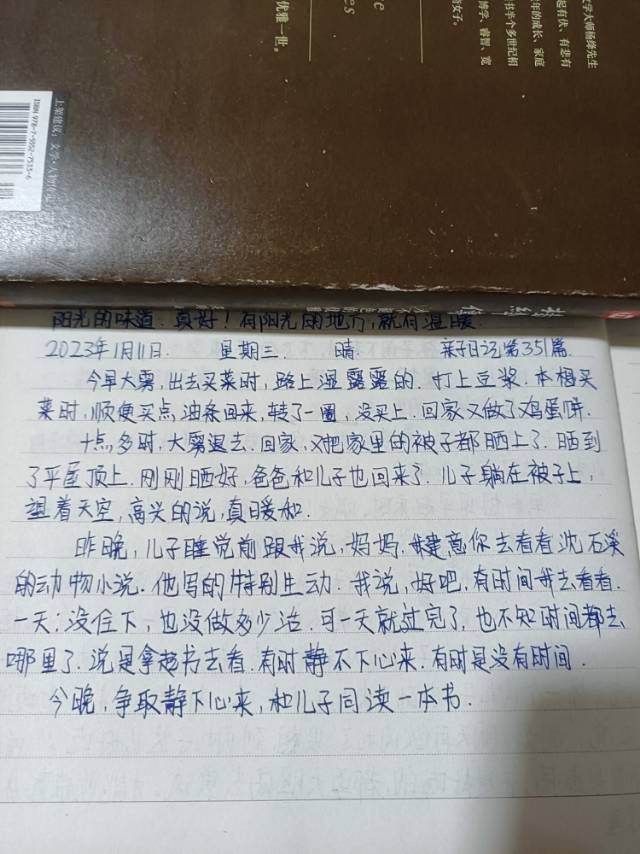 文学大师杨绛先生
起有伏、有悲有
年的成长、家庭
书半个多世纪相
博学、睿智、宽
女子。
优雅一世。
上架建议：文学·人物传记
ISBN 978-7-5552-7533-6
阳光的味道.真好！有阳光的地方,就有温暖.
2023年1月11日. 星期三. 晴 亲子日记第351篇.
今早大雾,出去买菜时,路上湿露露的.打上豆浆.本想买
菜时,顺便买点油条回来,转了一圈,没买上.回家又做了鸡蛋饼.
十点多时,大雾退去.回家,又把家里的被子都晒上了.晒到
了平屋顶上.刚刚晒好,爸爸和儿子也回来了.儿子躺在被子上,
望着天空,高兴的说,真暖和.
昨晚,儿子睡觉前跟我说,妈妈.我建意你去看看沈石溪
的动物小说.他写的特别生动.我说,好吧,有时间我去看看.
一天;没住下,也没做多少活.可一天就过完了,也不知时间都去
哪里了.说是拿起书去看.有时静不下心来.有时是没有时间.
今晚,争取静下心来,和儿子同读一本书.